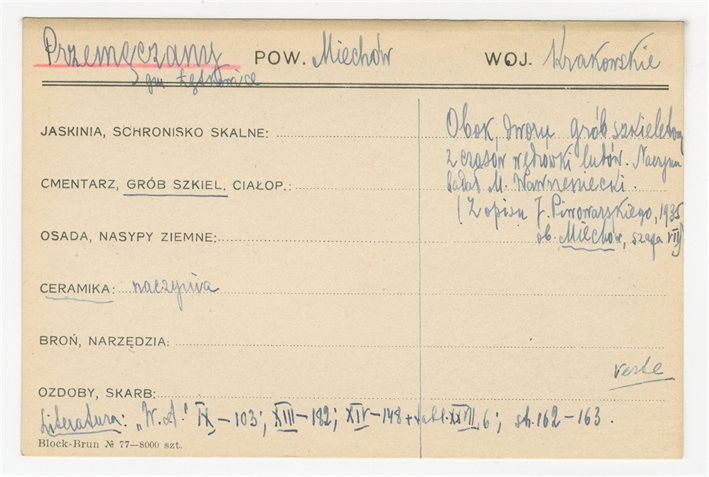 Przemęczany POW. Miechów WOJ. Krakowskie
gm
JASKINIA, SCHRONISKO SKALNE:
Obok dworu grób szkieletowy
z czasów wędrówki ludów. Naczynia
CMENTARZ, GRÓB SZKIEL. CIAŁOP.:
badał M. Wawrzeniecki.
(Z opisu J. Piwowarskiego, 1935
OSADA, NASYPY ZIEMNE:
ob. Miechów, VII)
CERAMIKA: naczynia
BROŃ, NARZĘDZIA:
verte
OZDOBY, SKARB:
Literatura: „W. A." IX – 103; XIII – 182; XIV – 148 + tabl. 6; st. 162 – 163.
Block-Brun № 77—8000 szt.